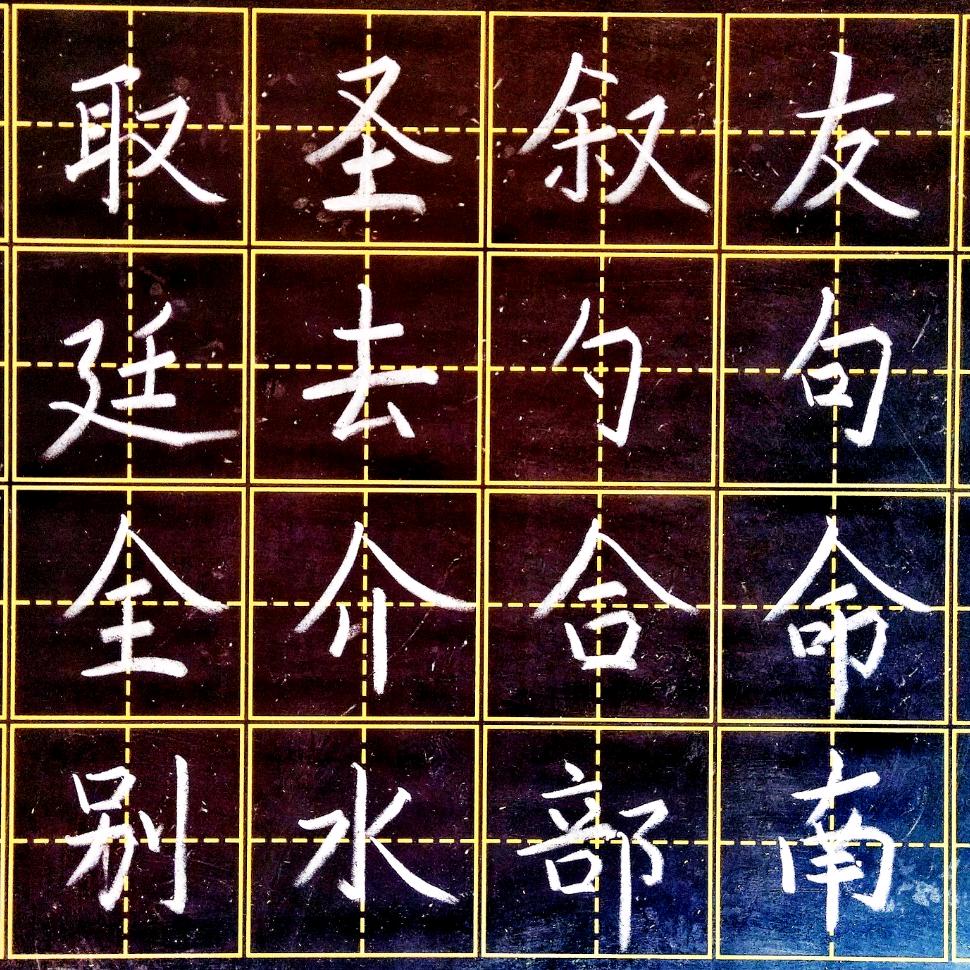 取圣叙友
廷去勺句
全介合命
别水部南